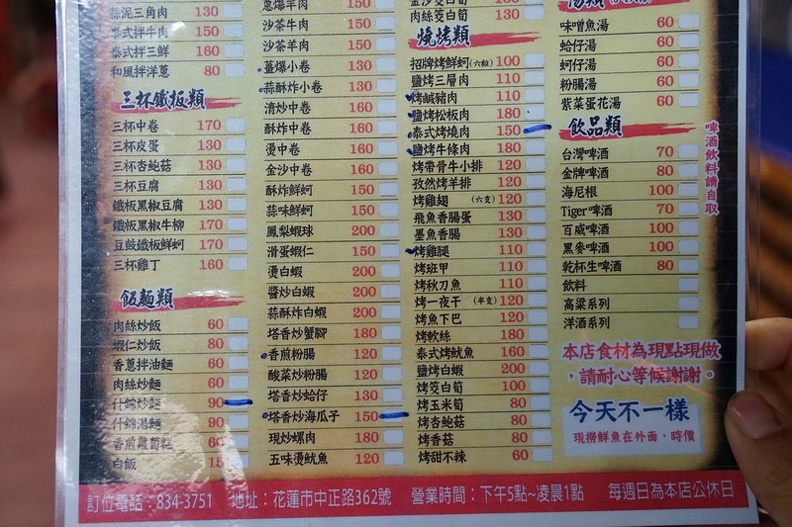 蒜泥三角肉 130
泰式拌牛肉 150
泰式拌三鮮 160
和風拌洋蔥 80
三杯鐵板類
三杯中卷 170
三杯皮蛋 130
三杯杏鮑菇 130
三杯豆腐 130
鐵板黑椒豆腐 130
鐵板黑椒牛柳 170
豆豉鐵板鮮蚵 170
三杯雞丁 160
飯麵類
肉絲炒飯 60
蝦仁炒飯 80
香蔥拌油麵 60
肉絲炒麵 60
什錦炒麵 90
什錦湯麵 90
香煎蘿蔔糕 60
白飯 15
蔥爆牛肉 150
沙茶牛肉 150
沙茶羊肉 150
薑爆小卷 130
蒜酥炸小卷 130
清炒中卷 160
酥炸中卷 160
燙中卷 160
金沙中卷 160
酥炸鮮蚵 150
蒜味鮮蚵 150
鳳梨蝦球 200
滑蛋蝦仁 150
燙白蝦 200
醬炒白蝦 200
蒜酥炸白蝦 200
塔香炒蟹腳 180
香煎粉腸 120
酸菜炒粉腸 120
塔香炒蛤仔 130
塔香炒海瓜子 150
現炒螺肉 180
五味燙魷魚 120
金沙茭白筍
肉絲茭白筍 130
燒烤類
招牌烤鮮蚵(六粒) 100
鹽烤三層肉 110
烤鹹豬肉 110
鹽烤松板肉 180
泰式烤燒肉 150
鹽烤牛條肉 180
烤帶骨牛小排 120
孜然烤羊排 120
烤雞翅 (六支) 120
飛魚香腸蛋 130
墨魚香腸 130
烤雞腿 110
烤班甲 110
烤秋刀魚 110
烤一夜干 (半支) 120
烤魚下巴 120
烤軟絲 180
泰式烤魷魚 160
鹽烤白蝦 200
烤茭白筍 100
烤玉米筍 80
烤杏鮑菇 80
烤香菇 80
烤甜不辣 60
味噌魚湯 60
蛤仔湯 60
蚵仔湯 60
粉腸湯 60
紫菜蛋花湯 60
飲品類
台灣啤酒 70
金牌啤酒 80
海尼根 100
Tiger啤酒 70
百威啤酒 100
黑麥啤酒 100
乾杯生啤酒 80
飲料
高粱系列
洋酒系列
啤酒飲料請自取
本店食材為現點現做
，請耐心等候謝謝。
今天不一樣
現撈鮮魚在外面，時價
訂位電話：834-3751 地址：花蓮市中正路362號 營業時間：下午5點~凌晨1點 每週日為本店公休日